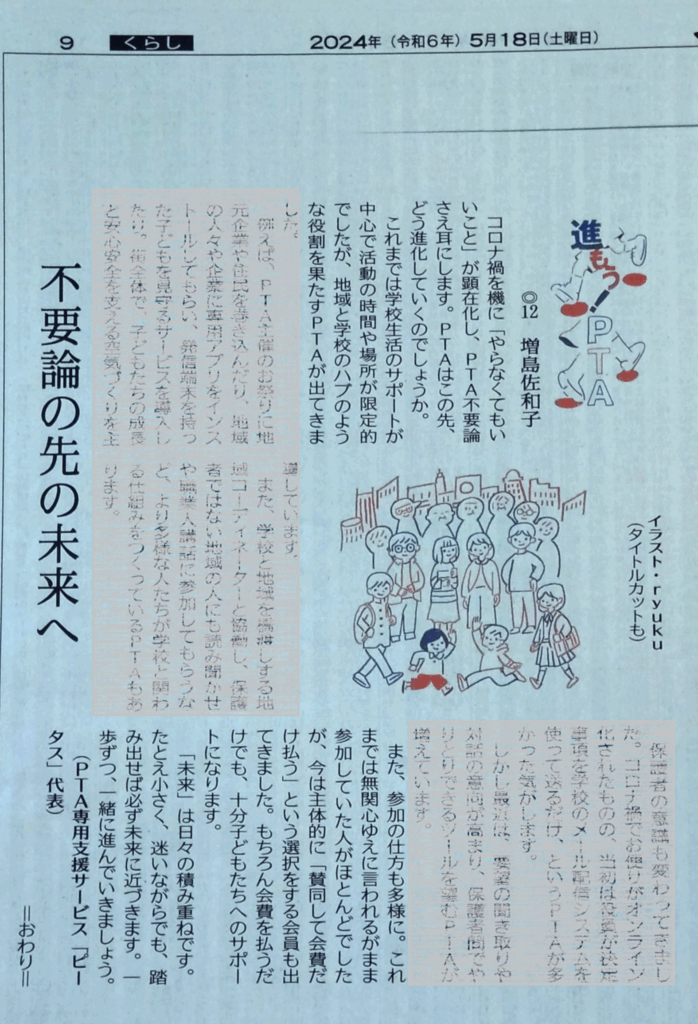 9
くらし
2024年（令和6年）5月18日（土曜日）
進もう！PTA
◎12　増島佐和子
不要論の先の未来へ
イラスト・ryuku
（タイトルカットも）
コロナ禍を機に「やらなくてもい
いこと」が顕在化し、PTA不要論
さえ耳にします。PTAはこの先、
どう進化していくのでしょうか。
これまでは学校生活のサポートが
中心で活動の時間や場所が限定的
でしたが、地域と学校のハブのよう
な役割を果たすPTAが出てきま
した。
例えば、PTA主催のお祭りに地
元企業や住民を巻き込んだり、地域
の人々や企業に専用アプリをインス
トールしてもらい、発信端末を持っ
た子どもを見守るサービスを導入し
たり。街全体で、子どもたちの成長
と安心安全を支える空気づくりを主
導しています。
また、学校と地域を橋渡しする地
域コーディネーターと協働し、保護
者ではない地域の人にも読み聞かせ
や職業人講話に参加してもらうな
ど、より多様な人たちが学校と関わ
る仕組みをつくっているPTAもあ
ります。
保護者の意識も変わってきまし
た。コロナ禍でお便りがオンライン
化されたものの、当初は役員が決定
事項を学校のメール配信システムを
使って送るだけ、というPTAが多
かった気がします。
しかし最近は、要望の聞き取りや
対話の意向が高まり、保護者間でや
りとりできるツールを望むPTAが
増えています。
また、参加の仕方も多様に。これ
までは無関心ゆえに言われるがまま
参加していた人がほとんどでした
が、今は主体的に「賛同して会費だ
け払う」という選択をする会員も出
てきました。もちろん会費を払うだ
けでも、十分子どもたちへのサポー
トになります。
「未来」は日々の積み重ねです。
たとえ小さく、迷いながらでも、踏
み出せば必ず未来に近づきます。一
歩ずつ、一緒に進んでいきましょう。
（PTA専用支援サービス「ピー
タス」代表）
＝おわり＝